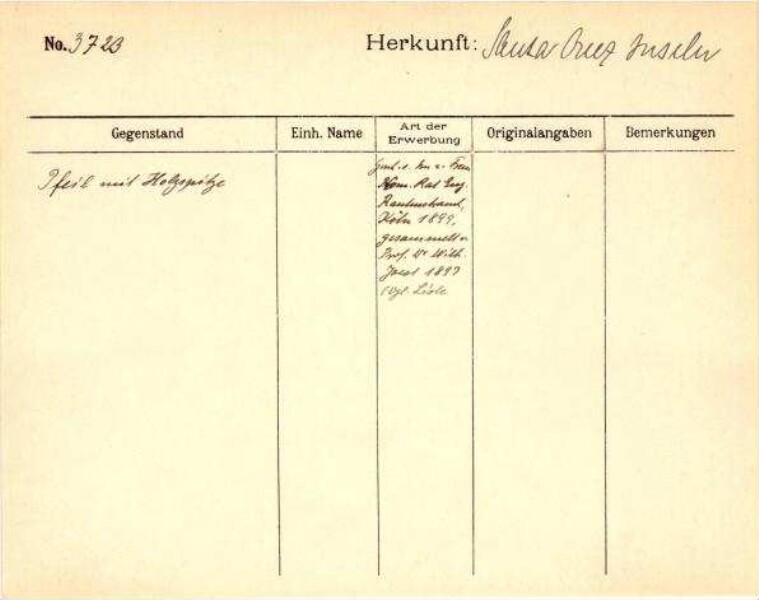 No. 3723
Herkunft: Santa Cruz Inseln
Gegenstand
Einh. Name
Art der
Erwerbung
Originalangaben
Bemerkungen
Pfeil mit Holzspitze
Kom. Rat Eug.
Rautenstrauch,
Köln 1899,
gesammelt v.
Prof. Dr Wilh.
Joest 1897
Vgl. Liste